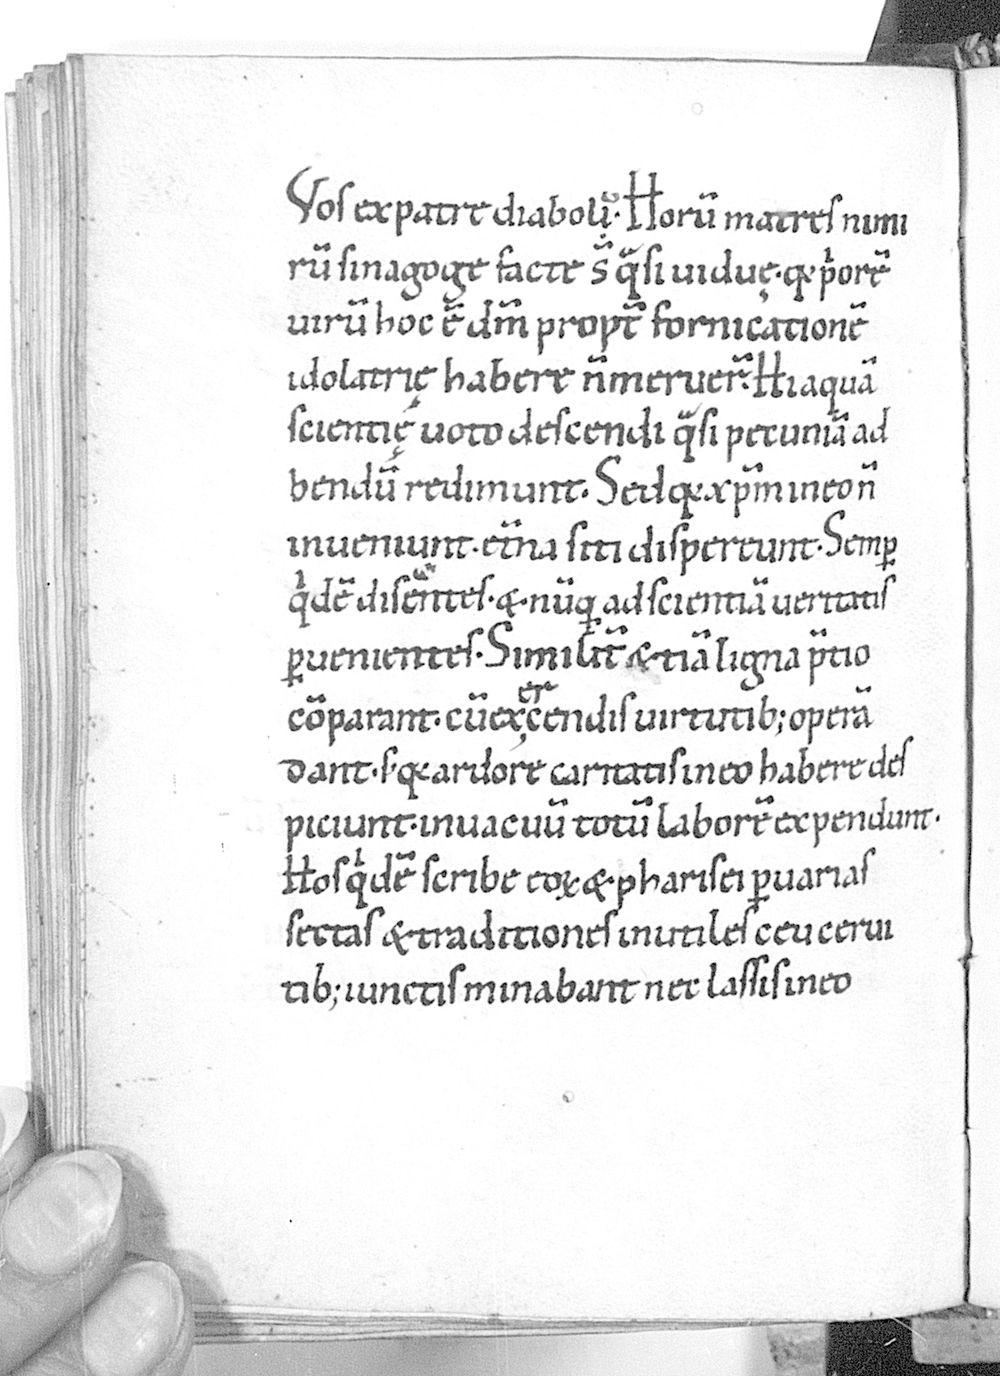 Vos ex patre diaboli. Horū matres nimi
rū sinagoge facte s̄ q̄si uiduę. qꝛ p̍orē
uirū hoc ē dm̄ propt̄ fornicationē
idolatrię habere n̄ meruer̄. Hi aquā
scientię uoto descendi q̄si pecuniā ad
bendū redimunt. Sed qꝛ xp̄m in eo n̄
inueniunt. et̄na siti dispereunt. Semꝑ
q̍dē disc̄ntes. & nūq̄ ad scientiā ueritatis
ꝑuenientes. Similit̄ & tiā ligna p̄tio
cōparant. cū excendis uirtutib; operā
dant. s; qꝛ ardorē caritatis in eo habere des
piciunt. in uacuū totū laborē expendunt.
Hos q̍dē scribe eoꝝ & pharisei ꝑ uarias
sectas & traditiones inutiles ceu cerui
tib; iunctis minabant nec lassis in eo